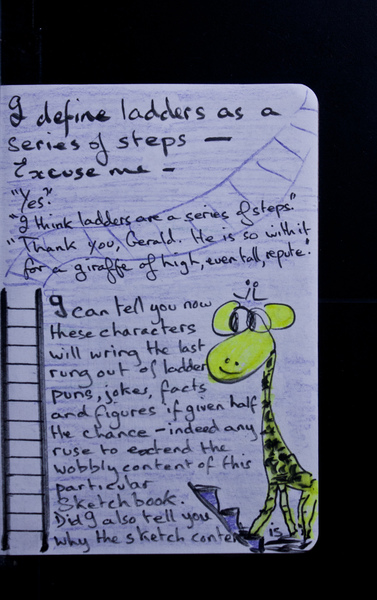 I define ladders as a
series of steps —
Excuse me —
"Yes?"
"I think ladders are a series of steps."
"Thank you, Gerald. He is so with it
for a giraffe of high, even tall, repute."
I can tell you now
these characters
will wring the last
rung out of ladder
puns, jokes, facts
and figures if given half
the chance – indeed any
ruse to extend the
wobbly content of this
particular
Sketchbook.
Did I also tell you
why the sketch content is